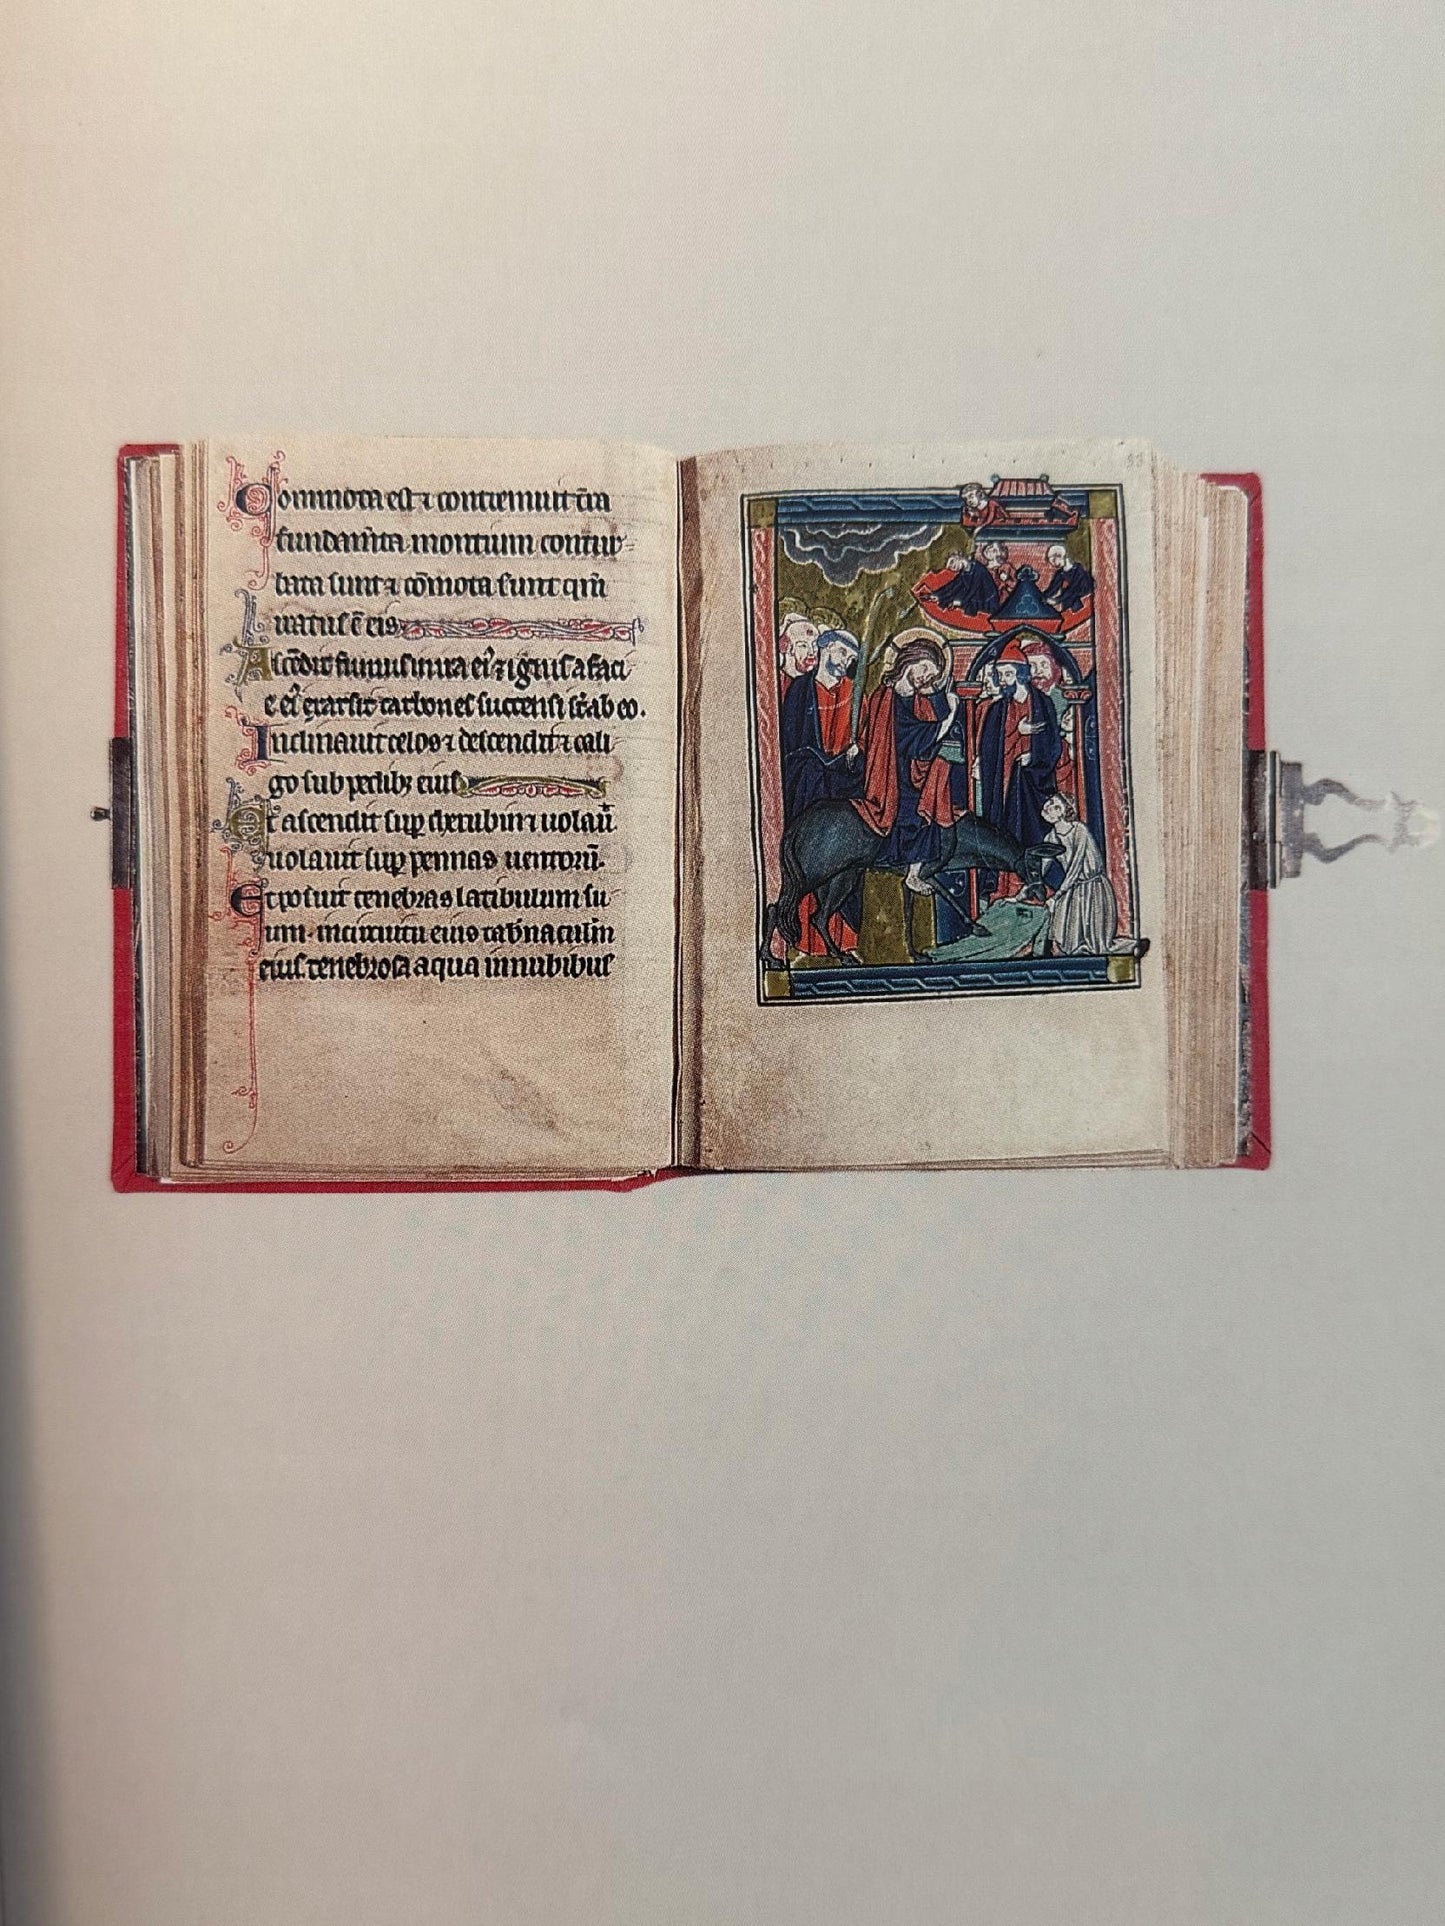 Commota est ⁊ contremuit t̄ra
fundam̄ta montium contur-
bata sunt ⁊ cōmota sunt qm̄
iratus ē eis
Ascēdit fumus in ira ei⁹ ⁊ ignis a faci-
e ei⁹ exarsit carbones succensi st̄ ab eo.
Inclinauit celos ⁊ descendit ⁊ cali-
go sub pedibꝫ eius
Et ascendit sup̲ cherubin ⁊ uolauit
uolauit sup̲ pennas uentoru̅.
Et posuit tenebras latibulum su-
um in circuitu eius tab̄naculu̅
eius tenebrosa aqua in nubibus